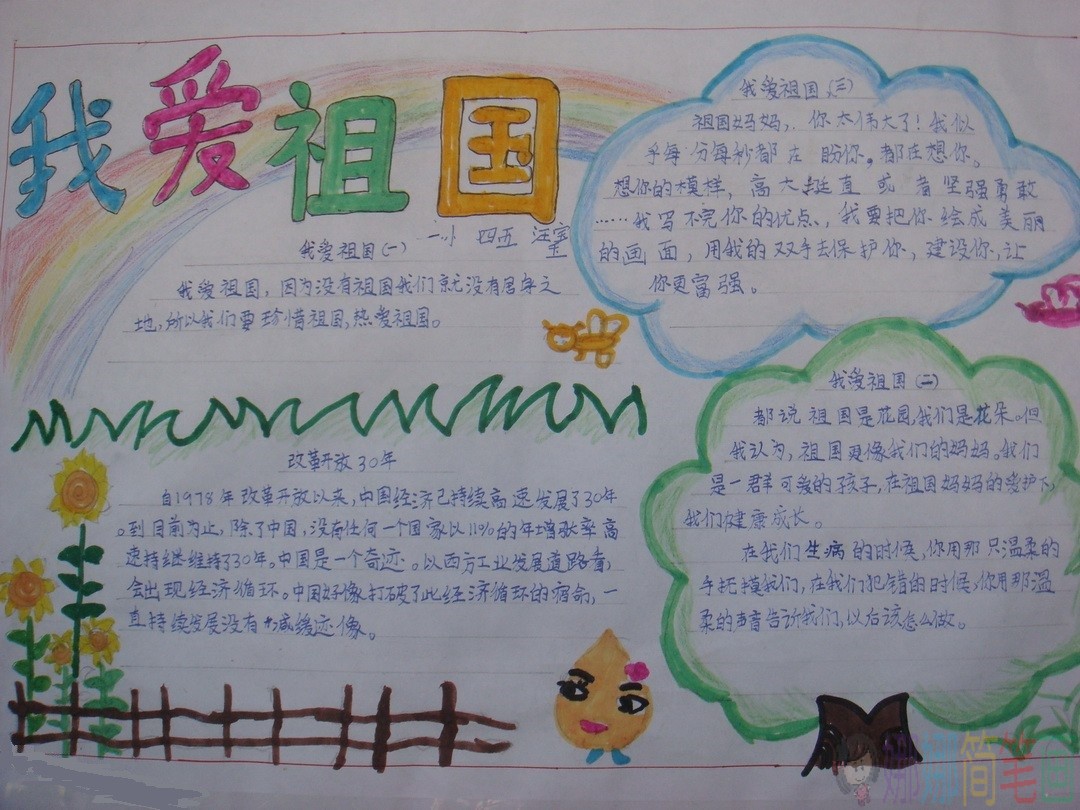 我爱祖国
一小 四五 汪宝
我爱祖国(一)
我爱祖国，因为没有祖国我们就没有居身之
地，所以我们要珍惜祖国，热爱祖国。
我爱祖国(三)
祖国妈妈，你太伟大了！我似
乎每分每秒都在盼你，都在想你。
想你的模样，高大挺直或者坚强勇敢
……我写不完你的优点，我要把你绘成美丽
的画面，用我的双手去保护你，建设你，让
你更富强。
我爱祖国(二)
都说祖国是花园，我们是花朵。但
我认为，祖国更像我们的妈妈。我们
是一群可爱的孩子，在祖国妈妈的爱护下，
我们健康成长。
在我们生病的时候，你用那只温柔的
手抚摸我们，在我们犯错的时候，你用那温
柔的声音告诉我们，以后该怎么做。
改革开放30年
自1978年改革开放以来，中国经济已持续高速发展了30年
。到目前为止，除了中国，没有任何一个国家以11%的年增长率高
速持继维持了30年。中国是一个奇迹。以西方工业发展道路看，
会出现经济循环。中国好像打破了此经济循环的宿命，一
直持续发展没有减缓迹像。
娜娜简笔画